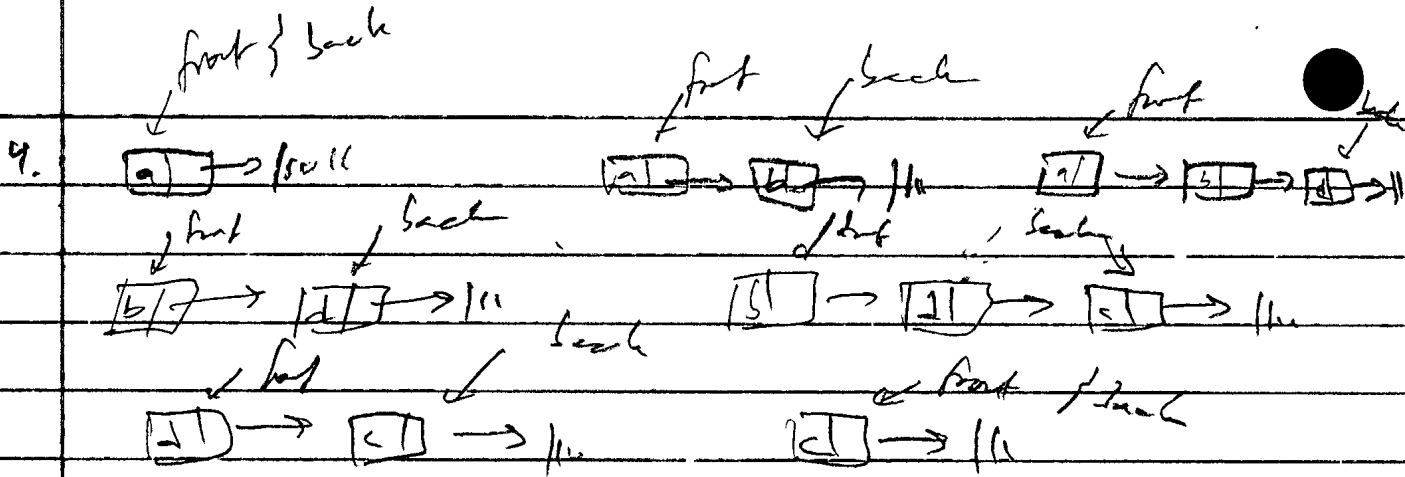 front } back
front back front back
4. a → null a → b → a → b → d →
front back front back
b → d → b → d → c →
front back front } back
d → c → c →